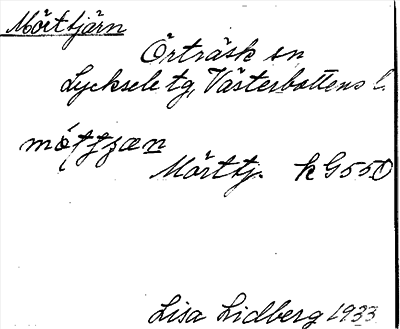 Mörttjärn
Örträsk sn
Lycksele tg, Västerbottens l.
Mörttj. k G550
Lisa Lidberg 1933